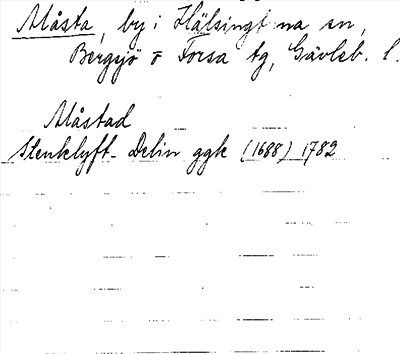 Älåsta, by i Hälsingtuna sn,
Bergsjö o Forsa tg, Gävleb. l.
Ålåstad
Stenklyft- Delin ggk (1688) 1782